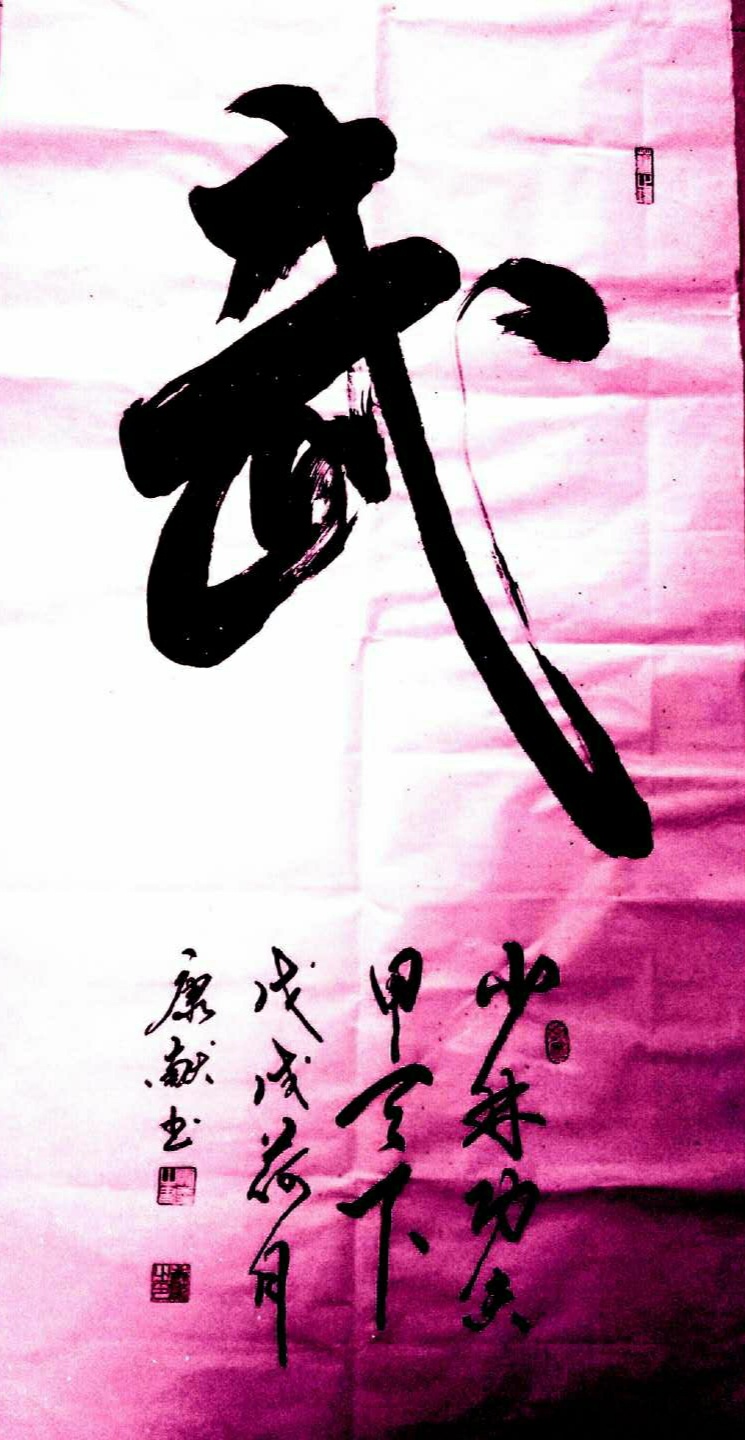 武
少林功夫
甲天下
戊戌荷月
康献书